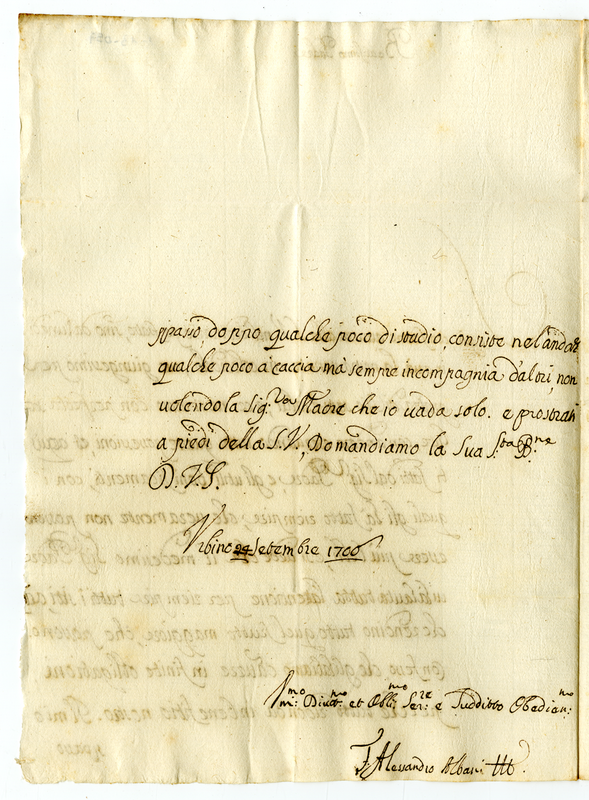 spasso, doppo qualche poco di studio, consiste nel andar
qualche poco à caccia mà sempre in compagnia d'altri, non
volendo la Sig.ra Madre che io vada solo. e prostrati
a piedi della S.V., Domandiamo la Sua S.ta B.ne
D. V. S.
Vrbino 24 Setembre 1700
Um.mo Divot.mo et Obb.mo Ser.re e Sudditto Obedien.mo
F. Alessandro Albani